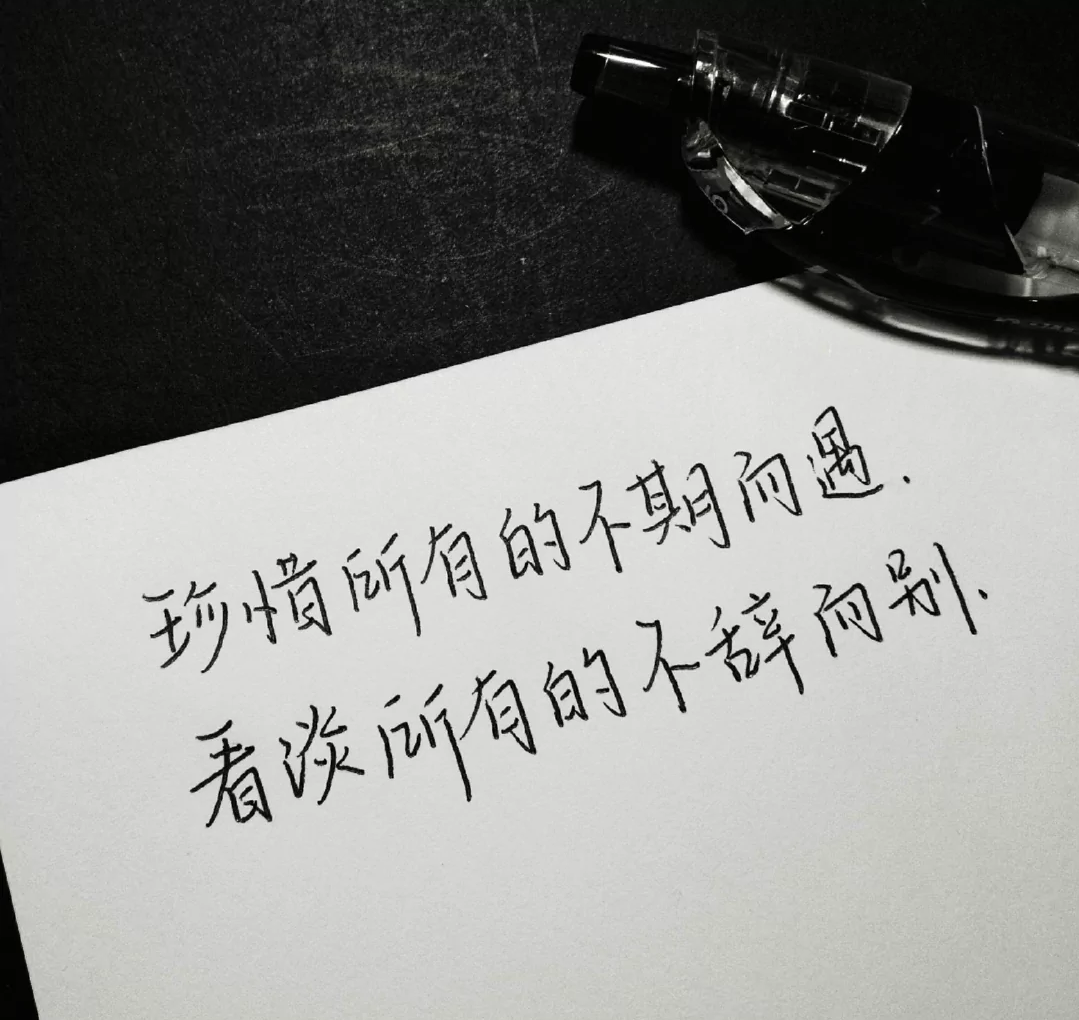 珍惜所有的不期而遇.
看淡所有的不辞而别.